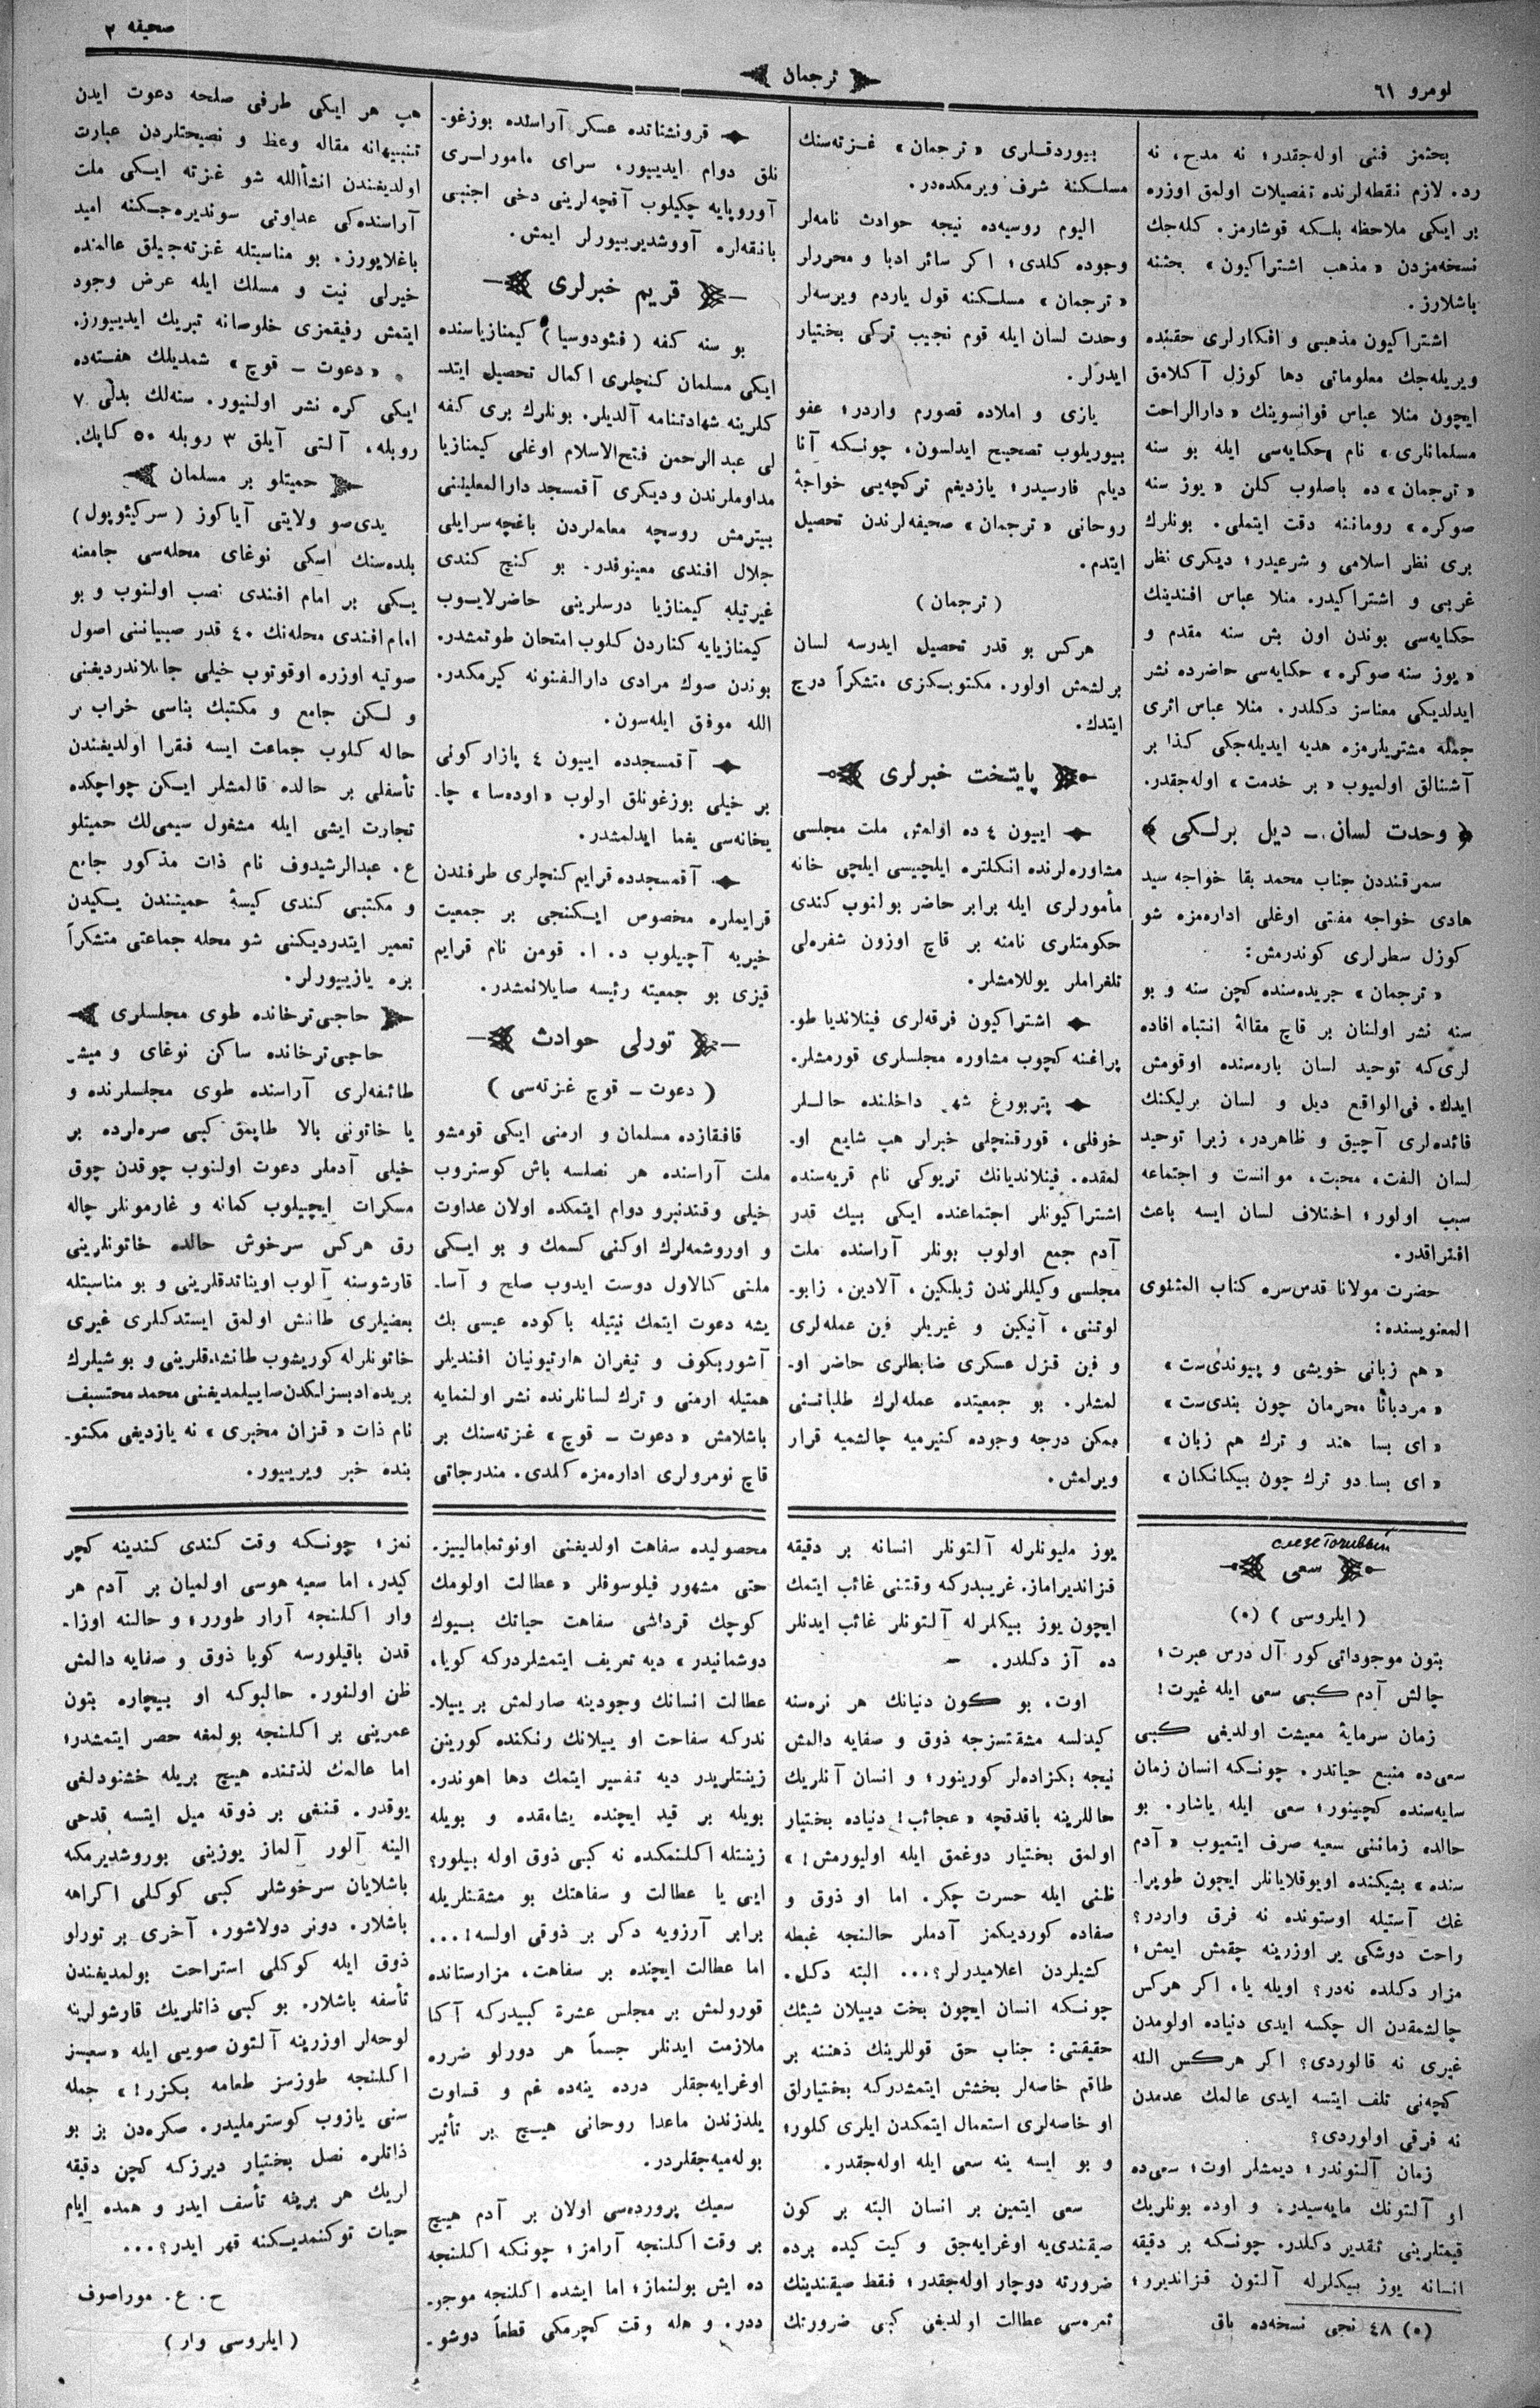 صحيفه ٢
ترجمان
نومرو ٦١
بحثمز فنى اوله‌جقدر؛ نه مدح، نه
رد. لازم نقطه‌لرنده تفصيلات اولمق اوزره
بر ايكى ملاحظه بلكه قوشارمز. كله‌جك
نسخه‌مزدن «مذهب اشتراكيون» بحثنه
باشلارز.
اشتراكيون مذهبى و افكارلرى حقنده
ويريله‌جك معلوماتى دها كوزل آكلامق
ايچون منلا عباس فوانسوينك «دارالراحت
مسلمانلرى» نام حكايه‌سى ايله بو سنه
«ترجمان» ده باصلوب كلن «يوز سنه
صوكره» روماننه دقت ايتملى. بونلرك
برى نظر اسلامى و شرعيدر؛ ديكرى نظر
غربى و اشتراكيدر. منلا عباس افندينك
حكايه‌سى بوندن اون بش سنه مقدم و
«يوز سنه صوكره» حكايه‌سى حاضرده نشر
ايدلديكى معناسز دكلدر. منلا عباس اثرى
جمله مشتريلرمزه هديه ايديله‌جكى كذا بر
آشنالق اولميوب «بر خدمت» اوله‌جقدر.
﴿ وحدت لسان ــ ديل برلكى ﴾
سمرقنددن جناب محمد بقا خواجه سيد
هادى خواجه مفتى اوغلى اداره‌مزه شو
كوزل سطرلرى كوندرمش:
«ترجمان» جريده‌سنده كچن سنه و بو
سنه نشر اولنان بر قاچ مقالهٔ انتباه افاده
لرى‌كه توحيد لسان باره‌سنده اوقومش
ايدك. فى‌الواقع ديل و لسان برليكنك
فائده‌لرى آچيق و ظاهردر، زيرا توحيد
لسان الفت، محبت، موانست و اجتماعه
سبب اولور؛ اختلاف لسان ايسه باعث
افتراقدر.
حضرت مولانا قدس‌سره كتاب المثنوى
المعنويسنده:
«هم زبانى خويشى و پيوندى‌ست»
«مردبانا محرمان چون بندى‌ست»
«اى بسا هند و ترك هم زبان»
«اى بسا دو ترك چون بيكانكان»
بيوردقلرى «ترجمان» غزته‌سنك
مسلكنه شرف ويرمكده‌در.
اليوم روسيه‌ده نيجه حوادث نامه‌لر
وجوده كلدى؛ اكر سائر ادبا و محررلر
«ترجمان» مسلكنه قول ياردم ويرسه‌لر
وحدت لسان ايله قوم نجيب تركى بختيار
ايدرلر.
يازى و املاده قصورم واردر؛ عفو
بيوريلوب تصحيح ايدلسون، چونكه آنا
ديلم فارسيدر؛ يازديغم تركچه‌يى خواجهٔ
روحانى «ترجمان» صحيفه‌لرندن تحصيل
ايتدم.
(ترجمان)
هركس بو قدر تحصيل ايدرسه لسان
برلشمش اولور. مكتوبكزى متشكراً درج
ايتدك.
پايتخت خبرلرى
اييون ٤ ده اولمش ملت مجلسى
مشاوره‌لرنده انكلتره ايلچيسى ايلچى خانه
مأمورلرى ايله برابر حاضر بولنوب كندى
حكومتلرى نامنه بر قاچ اوزون شفره‌لى
تلغراملر يوللامشلر.
اشتراكيون فرقه‌لرى فينلانديا طو-
پراغنه كچوب مشاوره مجلسلرى قورمشلر.
پتربورغ شهر داخلنده حاللر
خوفلى، قورقنچلى خبرلر هپ شايع او-
لمقده. فينلانديانك تريوكى نام قريه‌سنده
اشتراكيونلر اجتماعنده ايكى بيك قدر
آدم جمع اولوب بونلر آراسنده ملت
مجلسى وكيللرندن ژيلكين، آلادين، زابو-
لوتنى، آنيكين و غيريلر فين عمله‌لرى
و فين قزل عسكرى ضابطلرى حاضر او-
لمشلر. بو جمعيتده عمله‌لرك طلباتنى
ممكن درجه وجوده كتيرميه چالشميه قرار
ويرلمش.
قرونشتاتده عسكر آراسنده بوزغو-
نلق دوام ايدييور، سراى مامورلرى
آوروپايه چكيلوب آقچه‌لرينى دخى اجنبى
بانقه‌لره آووشديرييورلر ايمش.
قريم خبرلرى
بو سنه كفه (فئودوسيا) كيمنازياسنده
ايكى مسلمان كنچلرى اكمال تحصيل ايتد-
كلرينه شهادتنامه آلديلر. بونلرك برى كفه
لى عبدالرحمن فتح‌الاسلام اوغلى كيمنازيا
مداوملرندن و ديكرى آقمسجد دارالمعلمينى
بيترمش روسچه معلملردن باغچه‌سرايلى
جلال افندى معينوفدر. بو كنچ كندى
غيرتيله كيمنازيا درسلرينى حاضرلايوب
كيمنازيايه كناردن كلوب امتحان طوتمشدر.
بوندن صوك مرادى دارالفنونه كيرمكدر.
الله موفق ايله‌سون.
آقمسجدده اييون ٤ پازار كونى
بر خيلى بوزغونلق اولوب «اوده‌سا» چا-
يخانه‌سى يغما ايدلمشدر.
آقمسجدده قرايم كنچلرى طرفندن
قرايملره مخصوص ايكنجى بر جمعيت
خيريه آچيلوب د. ا. قومن نام قرايم
قيزى بو جمعيته رئيسه صايلانمشدر.
تورلى حوادث
(دعوت ــ قوچ غزته‌سى)
قافقازده مسلمان و ارمنى ايكى قومشو
ملت آراسنده هر نصلسه باش كوستروب
خيلى وقتدنبرو دوام ايتمكده اولان عداوت
و اوروشمه‌لرك اوكنى كسمك و بو ايكى
ملتى كالاول دوست ايدوب صلح و آسا-
يشه دعوت ايتمك نيتيله باكوده عيسى بك
آشوربكوف و تيغران هارتيونيان افنديلر
همتيله ارمنى و ترك لسانلرنده نشر اولنمايه
باشلامش «دعوت ــ قوچ» غزته‌سنك بر
قاچ نومرولرى اداره‌مزه كلدى. مندرجاتى
هپ هر ايكى طرفى صلحه دعوت ايدن
تنبيهانه مقاله وعظ و نصيحتلردن عبارت
اولديغندن انشأالله شو غزته ايكى ملت
آراسنده‌كى عداوتى سونديره‌جكنه اميد
باغلايورز. بو مناسبتله غزته‌جيلق عالمنده
خيرلى نيت و مسلك ايله عرض وجود
ايتمش رفيقمزى خلوصانه تبريك ايدييورز.
«دعوت ــ قوچ» شمديلك هفته‌ده
ايكى كره نشر اولنيور. سنه‌لك بدلى ٧
روبله، آلتى آيلق ٣ روبله ٥٠ كاپك.
حميتلو بر مسلمان
يدى‌صو ولايتى آياكوز (سركيئوپول)
بلده‌سنك اسكى نوغاى محله‌سى جامعنه
يكى بر امام افندى نصب اولنوب و بو
امام افندى محله‌نك ٤٠ قدر صبياننى اصول
صوتيه اوزره اوقوتوب خيلى جانلاندرديغنى
و لكن جامع و مكتبك بناسى خراب بر
حاله كلوب جماعت ايسه فقرا اولديغندن
تأسفلى بر حالده قالمشلر ايكن چواچكده
تجارت ايشى ايله مشغول سيمى‌لك حميتلو
ع. عبدالرشيدوف نام ذات مذكور جامع
و مكتبى كندى كيسهٔ حميتندن يكيدن
تعمير ايتدرديكنى شو محله جماعتى متشكراً
بزه يازييورلر.
حاجى‌ترخانده طوى مجلسلرى
حاجى‌ترخانده ساكن نوغاى و ميشر
طائفه‌لرى آراسنده طوى مجلسلرنده و
يا خاتونى بالا طاپمق كبى صره‌لرده بر
خيلى آدملر دعوت اولنوب چوقدن چوق
مسكرات ايچيلوب كمانه و غارمونلر چاله
رق هركس سرخوش حالده خاتونلرينى
قارشوسنه آلوب اويناتدقلرينى و بو مناسبتله
بعضيلرى طانش اولمق ايستدكلرى غيرى
خاتونلرله كوريشوب طانشدقلرينى و بو شيلرك
بريده ادبسزلكدن صاييلمديغنى محمد محتسبف
نام ذات «قزان مخبرى» نه يازديغى مكتو-
بنده خبر ويرييور.
سعى
(ايلروسى) (٥)
بتون موجوداتى كور آل درس عبرت؛
چالش آدم كبى سعى ايله غيرت!
زمان سرمايهٔ معيشت اولديغى كبى
سعى‌ده منبع حياتدر. چونكه انسان زمان
سايه‌سنده كچينور؛ سعى ايله ياشار. بو
حالده زماننى سعيه صرف ايتميوب «آدم
سنده» بشيكنده اويوقلايانلر ايچون طوپرا-
غك آستيله اوستونده نه فرق واردر؟
راحت دوشكى ير اوزرينه چقمش ايمش؛
مزار دكلده نه‌در؟ اويله يا، اكر هركس
چالشمقدن ال چكسه ايدى دنياده اولومدن
غيرى نه قالوردى؟ اكر هركس النه
كچه‌نى تلف ايتسه ايدى عالمك عدمدن
نه فرقى اولوردى؟
زمان آلتوندر؛ ديمشلر اوت؛ سعى‌ده
او آلتونك مايه‌سيدر. و اوده بونلريك
قيمتلرينى تقدير دكلدر. چونكه بر دقيقه
انسانه يوز بيكلرله آلتون قزانديرر؛
(٥) ٤٨ نجى نسخه‌ده باق
يوز مليونلرله آلتونلر انسانه بر دقيقه
قزانديراماز. غريبدركه وقتنى غائب ايتمك
ايچون يوز بيكلرله آلتونلر غائب ايدنلر
ده آز دكلدر. –
اوت، بو كون دنيانك هر نره‌سنه
كيدلسه مشقتسزجه ذوق و صفايه دالمش
نيجه بكزاده‌لر كورينور؛ و انسان آنلريك
حاللرينه باقدقچه «عجائب! دنياده بختيار
اولمق بختيار دوغمق ايله اوليورمش!»
ظنى ايله حسرت چكر. اما او ذوق و
صفاده كورديكمز آدملر حالنجه غبطه
كشيلردن اعلاميدرلر؟... البته دكل.
چونكه انسان ايچون بخت دييلان شيئك
حقيقتى: جناب حق قوللرينك ذهننه بر
طاقم خاصه‌لر بخشش ايتمشدركه بختيارلق
او خاصه‌لرى استعمال ايتمكدن ايلرى كلور؛
و بو ايسه ينه سعى ايله اوله‌جقدر.
سعى ايتمين بر انسان البته بر كون
صيقندى‌يه اوغرايه‌جق و كيت كيده برده
ضرورته دوچار اوله‌جقدر؛ فقط صيقندينك
ثمره‌سى عطالت اولديغى كبى ضرورتك
محصوليده سفاهت اولديغنى اونوتمامالييز.
حتى مشهور فيلوسوفلر «عطالت اولومك
كوچك قرداشى سفاهت حياتك بيوك
دوشمانيدر» ديه تعريف ايتمشلردركه كويا،
عطالت انسانك وجودينه صارلمش بر ييلا-
ندركه سفاحت او ييلانك رنكنده كورينن
زينتلريدر ديه تفسير ايتمك دها اهوندر.
بويله بر قيد ايچنده يشامقده و بويله
زينتله اكلنمكده نه كبى ذوق اوله بيلور؟
ايى يا عطالت و سفاهتك بو مشقتلريله
برابر آرزويه دكر بر ذوقى اولسه!...
اما عطالت ايچنده بر سفاهت، مزارستانده
قورولمش بر مجلس عشرة كبيدركه آكا
ملازمت ايدنلر جسماً هر دورلو ضرره
اوغرايه‌جقلر درده ينه‌ده غم و قساوت
يلدزندن ماعدا روحانى هيچ بر تأثير
بوله‌ميه‌جقلردر.
سعيك پرورده‌سى اولان بر آدم هيچ
بر وقت اكلنجه آرامز؛ چونكه اكلنجه
ده ايش بولنماز؛ اما ايشده اكلنجه موجو-
ددر. و هله وقت كچرمكى قطعاً دوشو-
نمز؛ چونكه وقت كندى كندينه كچر
كيدر، اما سعيه هوسى اولميان بر آدم هر
وار اكلنجه آرار طورر؛ و حالنه اوزا-
قدن باقيلورسه كويا ذوق و صفايه دالمش
ظن اولنور. حالبوكه او بيچاره بتون
عمرينى بر اكلنجه بولمغه حصر ايتمشدر؛
اما عالمك لذتنده هيچ بريله خشنودلغى
يوقدر. قنغى بر ذوقه ميل ايتسه قدحى
الينه آلور آلماز يوزينى بوروشديرمكه
باشلايان سرخوشلر كبى كوكلى اكراهه
باشلار. دونر دولاشور. آخرى بر تورلو
ذوق ايله كوكلى استراحت بولمديغندن
تأسفه باشلار. بو كبى ذاتلريك قارشولرينه
لوحه‌لر اوزرينه آلتون صويى ايله «سعيسز
اكلنجه طوزسز طعامه بكزر!» جمله
سنى يازوب كوسترمليدر. صكره‌دن بز بو
ذاتلره نصل بختيار ديرزكه كچن دقيقه
لريك هر برينه تأسف ايدر و همده ايام
حيات توكنمديكنه قهر ايدر؟...
ح. ع. موراصوف
(ايلروسى وار)